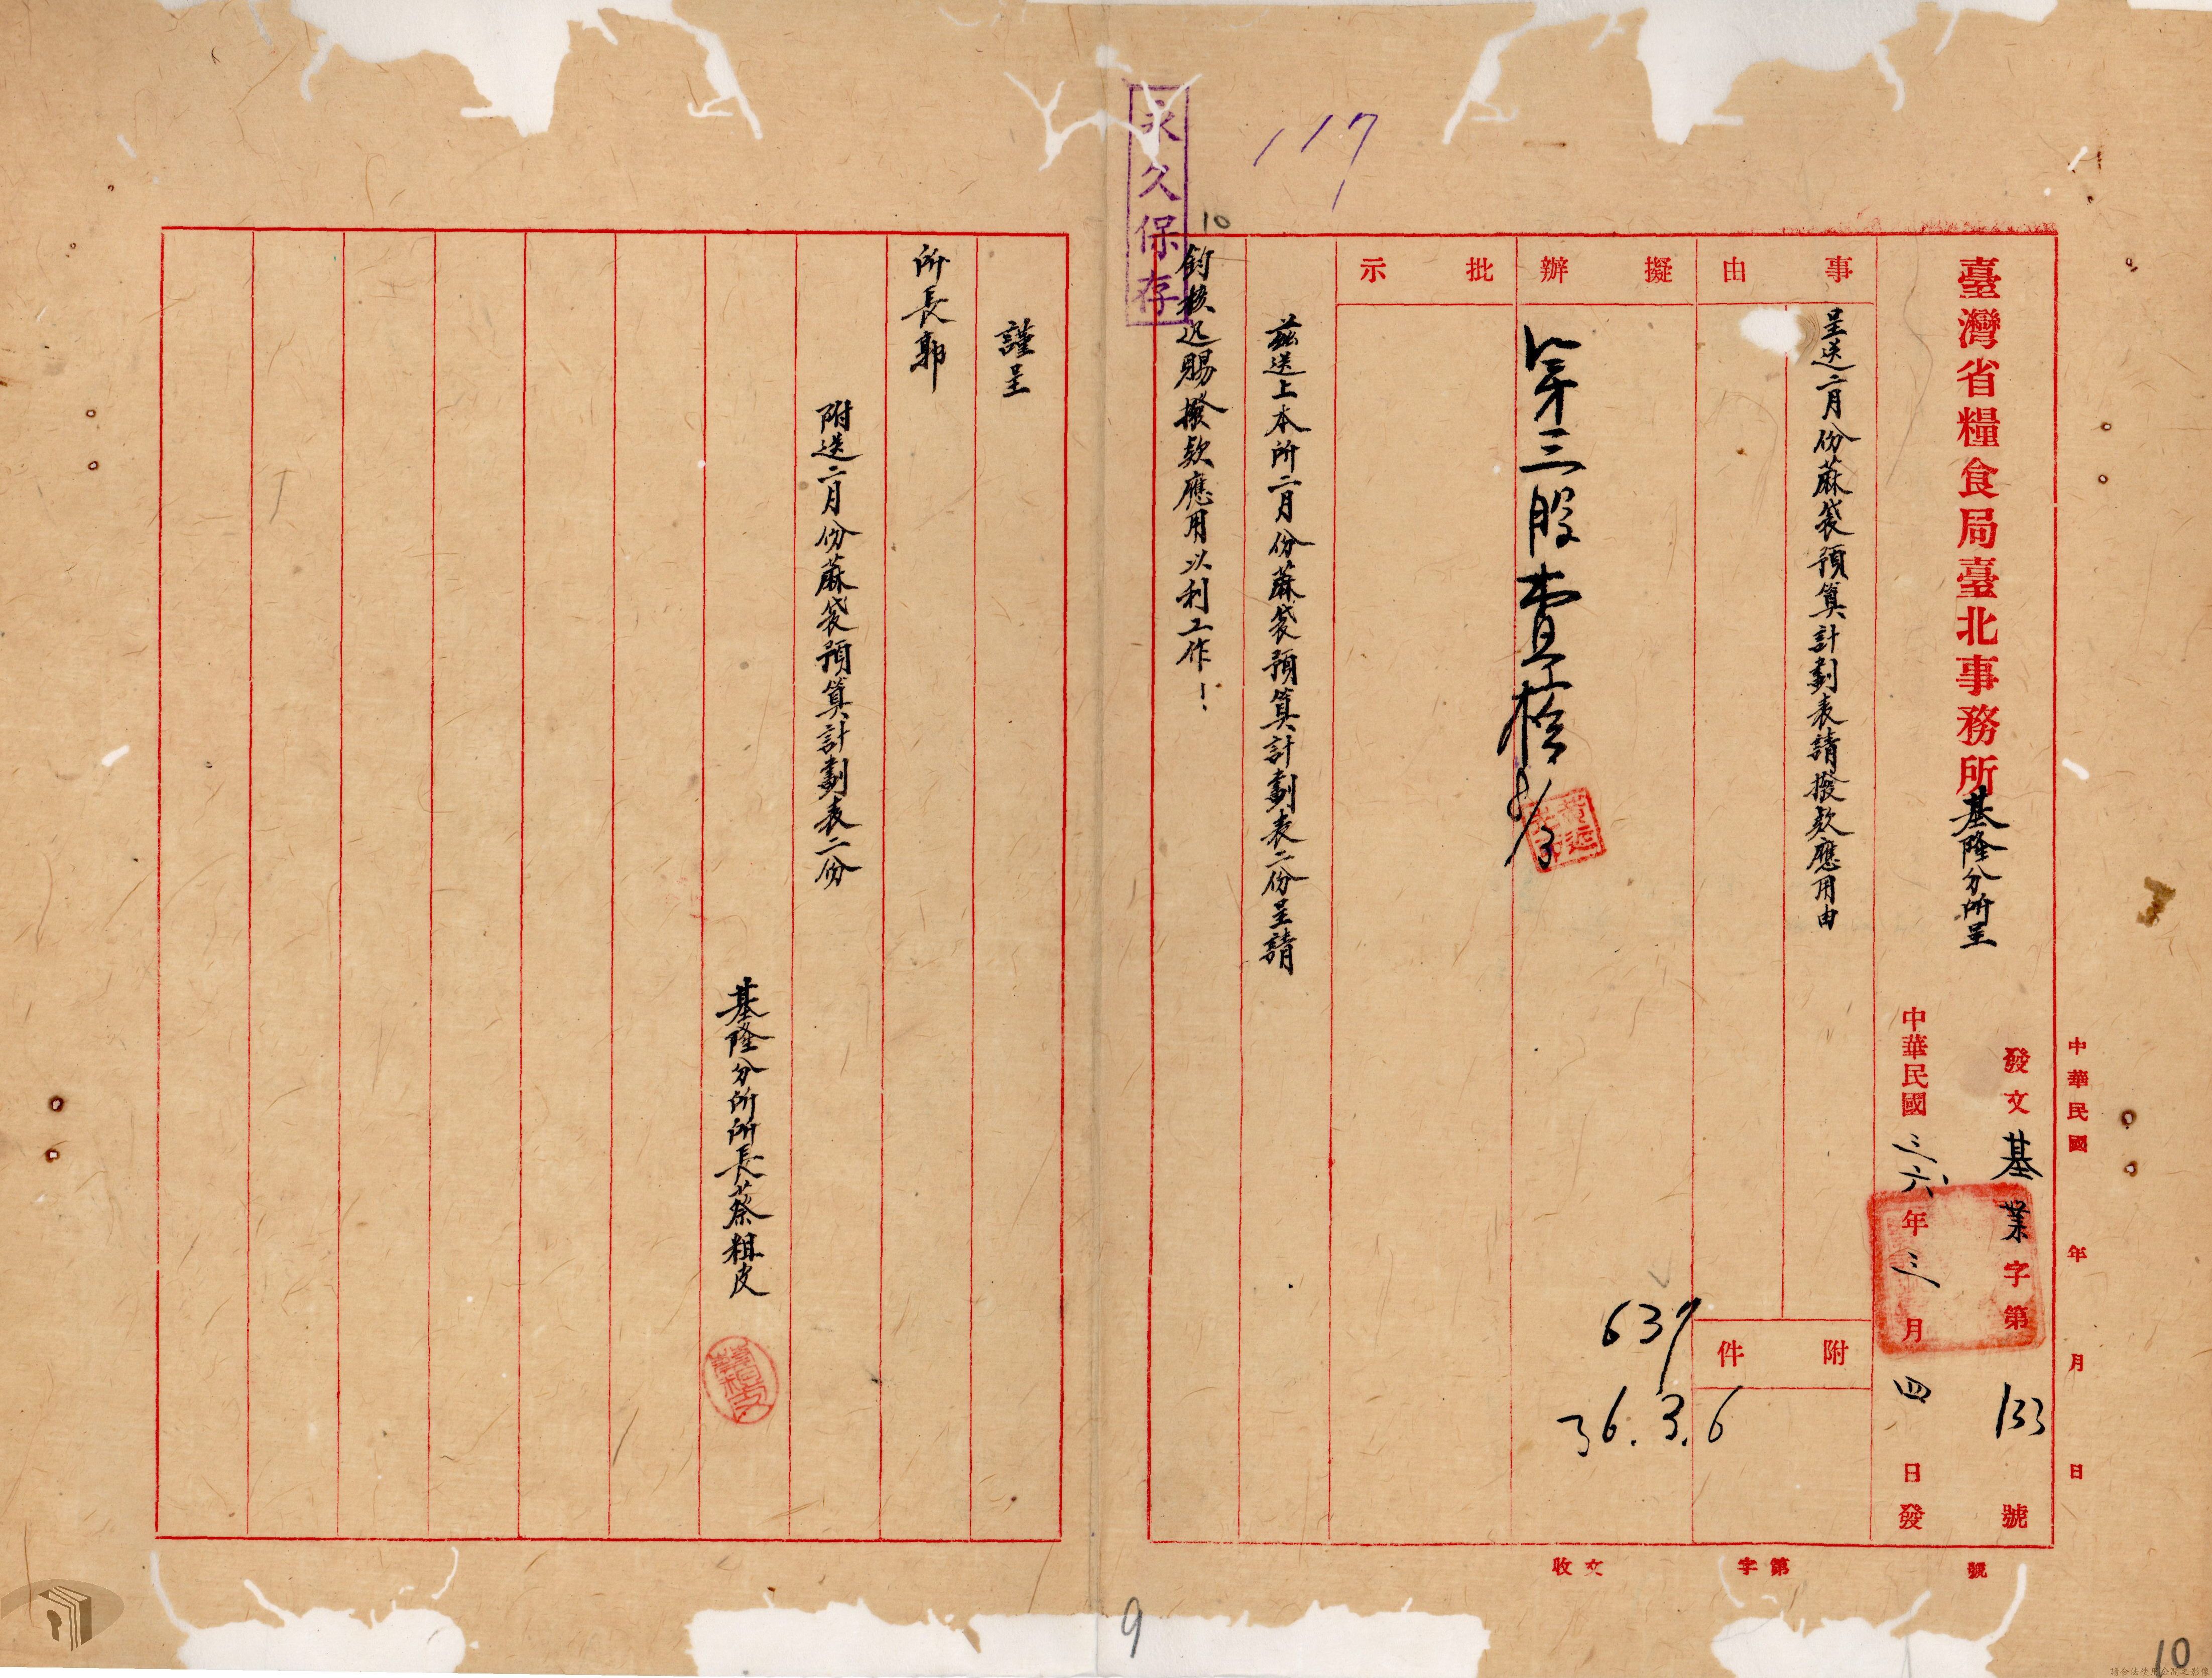 中華民國 年 月 日
臺灣省糧食局臺北事務所基隆分所呈
發文基業字第133號
中華民國三六年三月四日發
事由
呈送二月份蔴袋預算計劃表請撥款應用由
附件
擬辦
批示
第三股
637
36.3.6
收文 字第 號
茲送上本所二月份蔴袋預算計劃表二份呈請
鈞核迅賜撥款應用以利工作！
永久保存
117
10
謹呈
所長郭
附送二月份蔴袋預算計劃表二份
基隆分所所長蔡粗皮
9
10